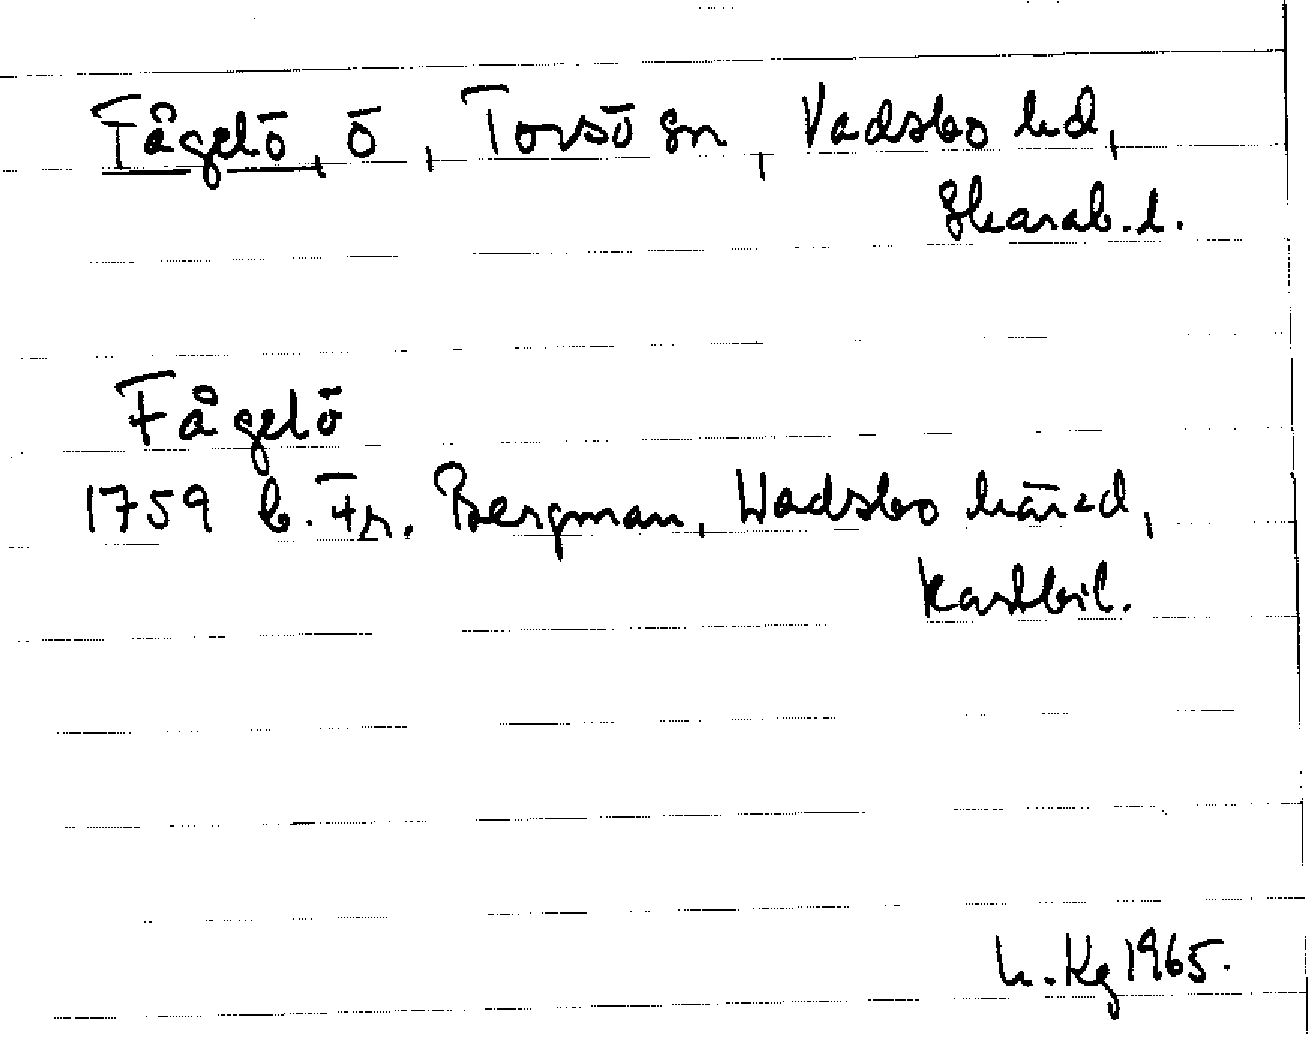 Fågelö, ö, Torsö sn, Vadsbo hd,
Skarab. l.
Fågelö
1759 b. Fr. Bergman, Wadsbo härad,
kartbil.
h. Kg 1965.